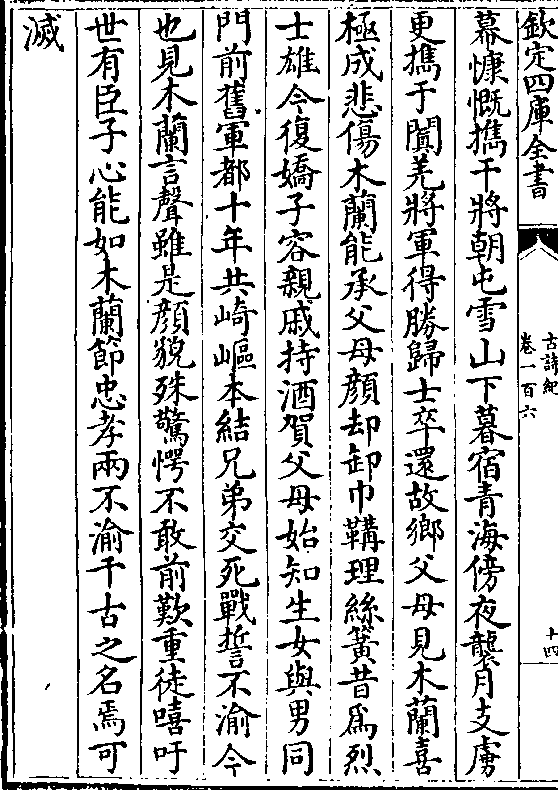 欽定四庫全書
古詩紀
卷一百六
十四
幕慷慨携干將朝屯雪山下暮宿青海傍夜襲月支虜
更携于闐羌將軍得勝歸士卒還故鄉父母見木蘭喜
極成悲傷木蘭能承父母顔却卸巾鞲理絲簧昔爲烈
士雄今復嬌子容親戚持酒賀父母始知生女與男同
門前舊軍都十年共崎嶇本結兄弟交死戰誓不渝今
也見木蘭言聲雖是顔貌殊驚愕不敢前歎重徒嘻吁
世有臣子心能如木蘭節忠孝兩不渝千古之名焉可
滅